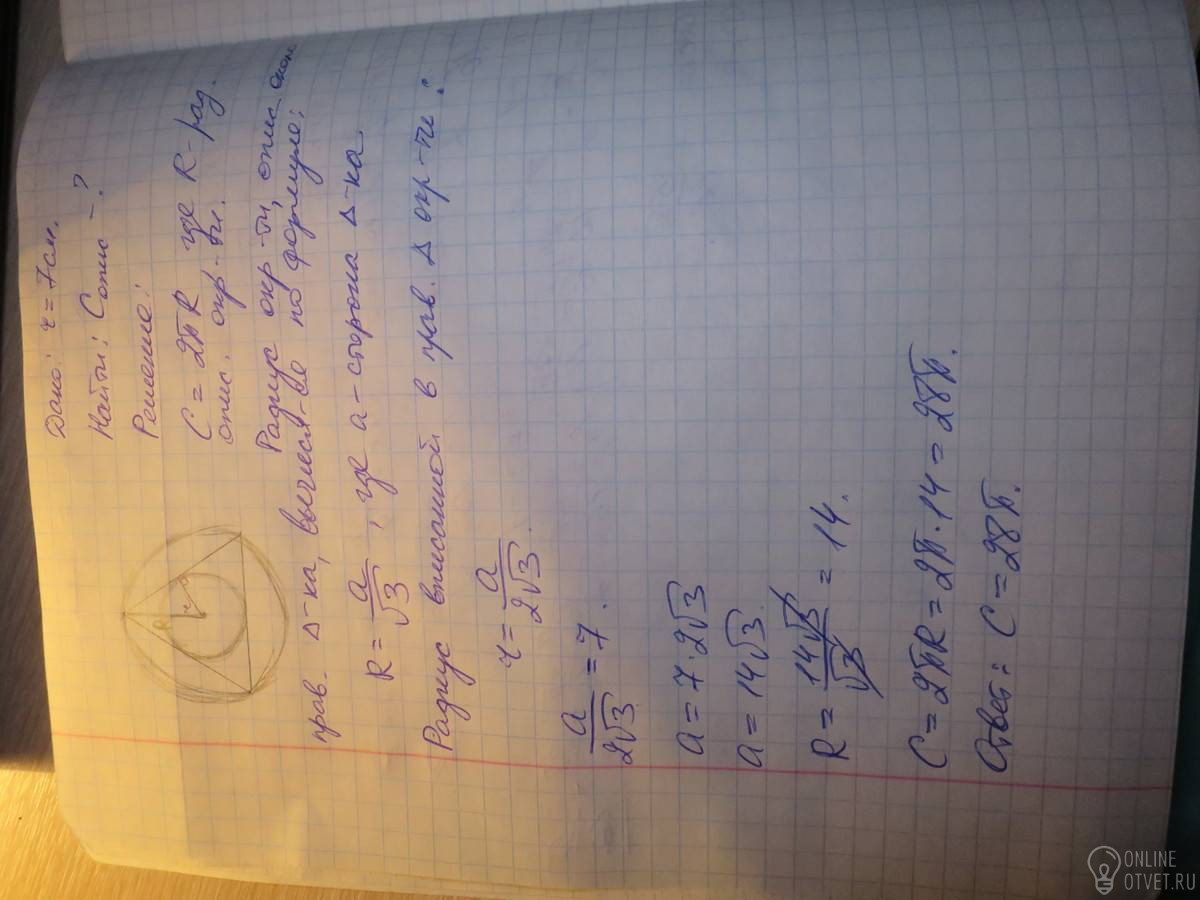 Дано: r = 7 см.
Найти: Cопис - ?
Решение:
C = 2πR где R - рад.
опис. окр-ти.
Радиус окр-ти, опис. около
прав. Δ-ка, вычисл-ся по формуле:
R = a/√3, где a - сторона Δ-ка
Радиус вписанной в прав. Δ окр-ти:
r = a/2√3.
a/2√3 = 7.
a = 7·2√3
a = 14√3.
R = 14√3/√3 = 14.
C = 2πR = 2π·14 = 28π.
Ответ: C = 28π.
R r
ONLINE
OTVET.RU